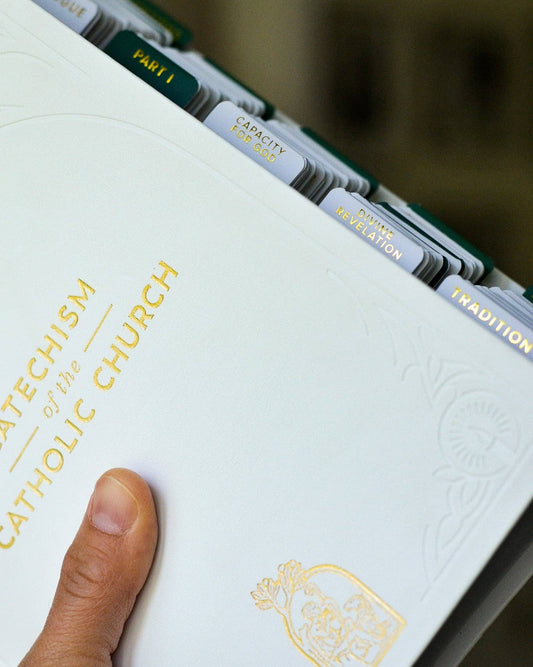 PART I
CAPACITY
FOR GOD
DIVINE
REVELATION
TRADITION
CATECHISM
of the
CATHOLIC CHURCH